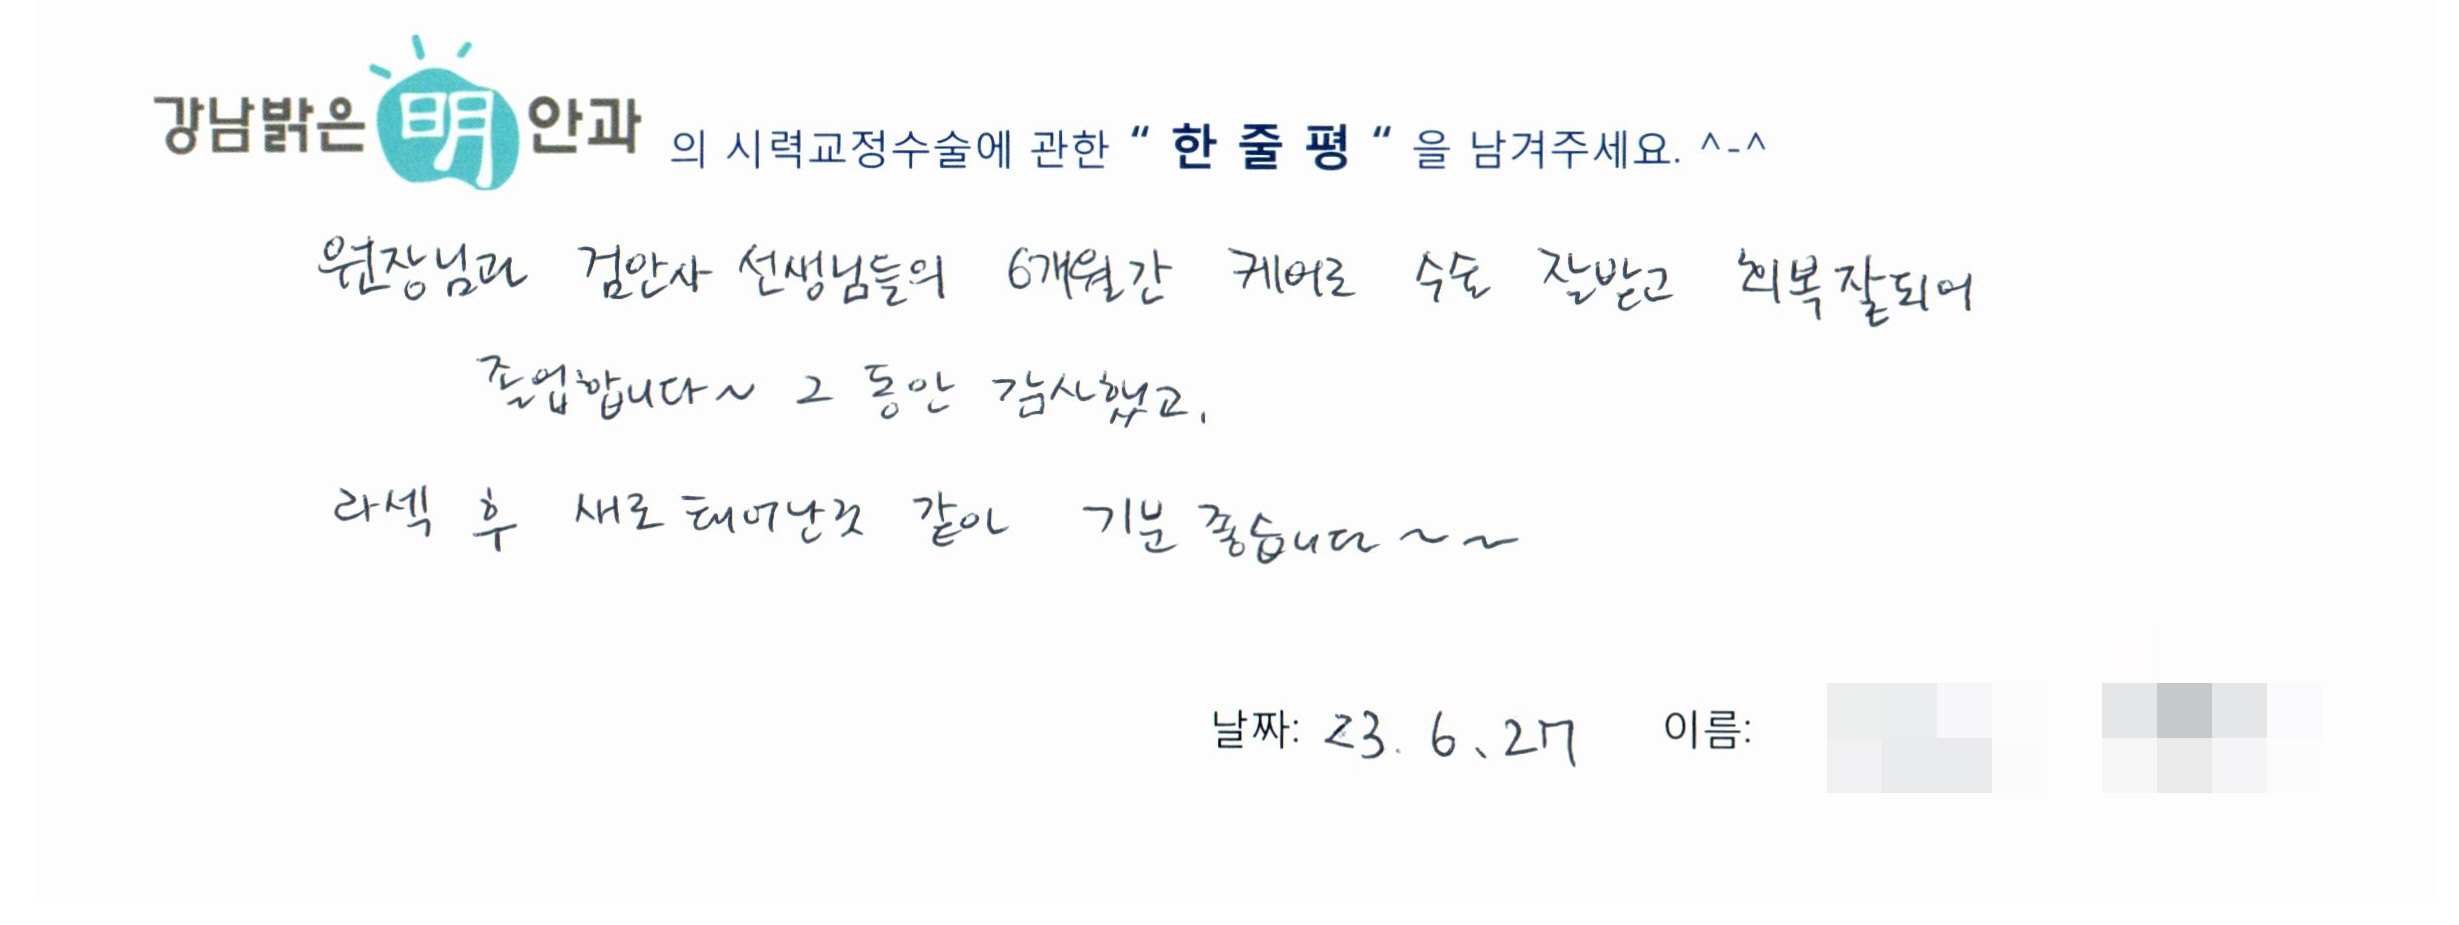 강남밝은 明 안과 의 시력교정수술에 관한 " 한 줄 평 " 을 남겨주세요. ^-^
원장님과 검안사 선생님들의 6개월간 케어로 수술 잘받고 회복잘되어
졸업합니다~ 그 동안 감사했고,
라섹 후 새로 태어난것 같아 기분 좋습니다~~
날짜: 23. 6. 27 이름: